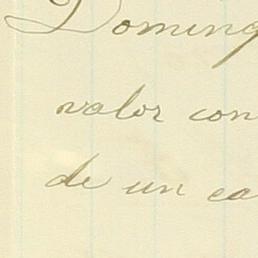 Doming
valor con
de un ca